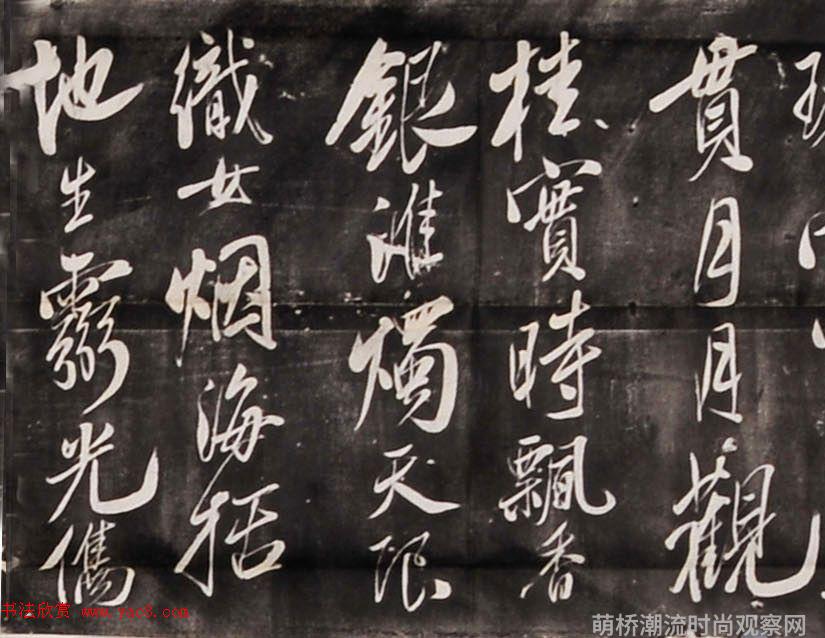 貫月月觀
桂實時飄香
銀淮燭天限
織女烟海括
地生靈光儁
书法欣赏 www.yac8.com
萌桥潮流时尚观察网